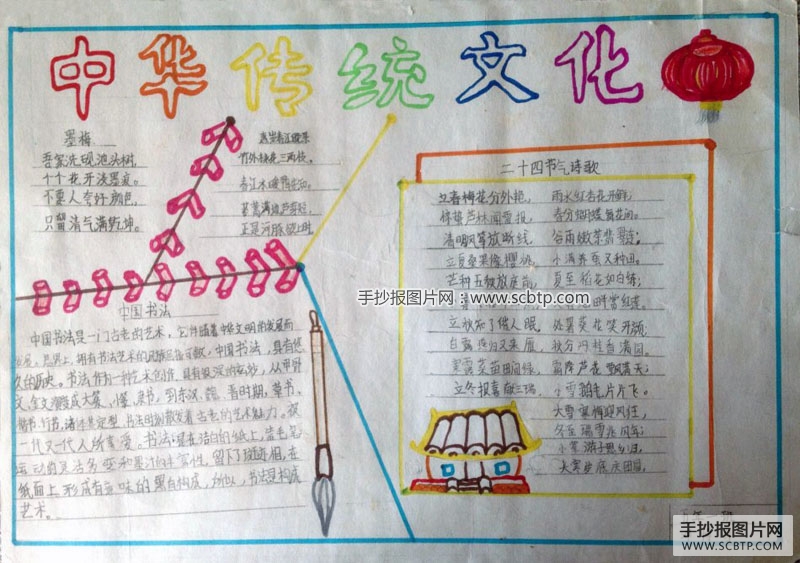 中华传统文化
墨梅
吾家洗砚池头树，
个个花开淡墨痕。
不要人夸好颜色，
只留清气满乾坤。
惠崇春江晚景
竹外桃花三两枝，
春江水暖鸭先知。
蒌蒿满地芦芽短，
正是河豚欲上时。
中国书法
中国书法是一门古老的艺术，它伴随着中华文明的发展而
发展。世界上，拥有书法艺术的民族屈指可数，中国书法，具有悠
久的历史。书法作为一种艺术创作，具有
文、金文演变成大篆、小篆、隶书，到东汉、魏、晋时期，草书、
楷书、行书，诸体基定型，书法时刻散发着古老的艺术魅力。被
一代又一代人所喜爱。书法：是在洁白的纸上，靠毛笔
运动的灵活多变和
纸面上形成有意味的黑白构成，所以，书法是构成
艺术。
二十四节气诗歌
立春梅花分外艳，雨水红杏花开鲜；
惊蛰芦林闻雷报，春分蝴蝶舞花间。
清明风筝放断线，谷雨嫩茶翡翠连；
立夏桑果像樱桃，小满养蚕又种田。
芒种五谷放庭前，夏至稻花如白练；
立秋知了催人眠，处暑葵花笑开颜；
白露燕归又来雁，秋分丹桂香满园。
寒露菜苗田间绿，霜降芦花飘满天；
立冬报喜献三瑞，小雪鹅毛片片飞。
大雪寒梅迎风狂，
冬至瑞雪兆丰年；
小寒游子思乡归，
大寒岁底庆团圆。
手抄报图片网：www.scbtp.com
手抄报图片网
WWW.SCBTP.COM